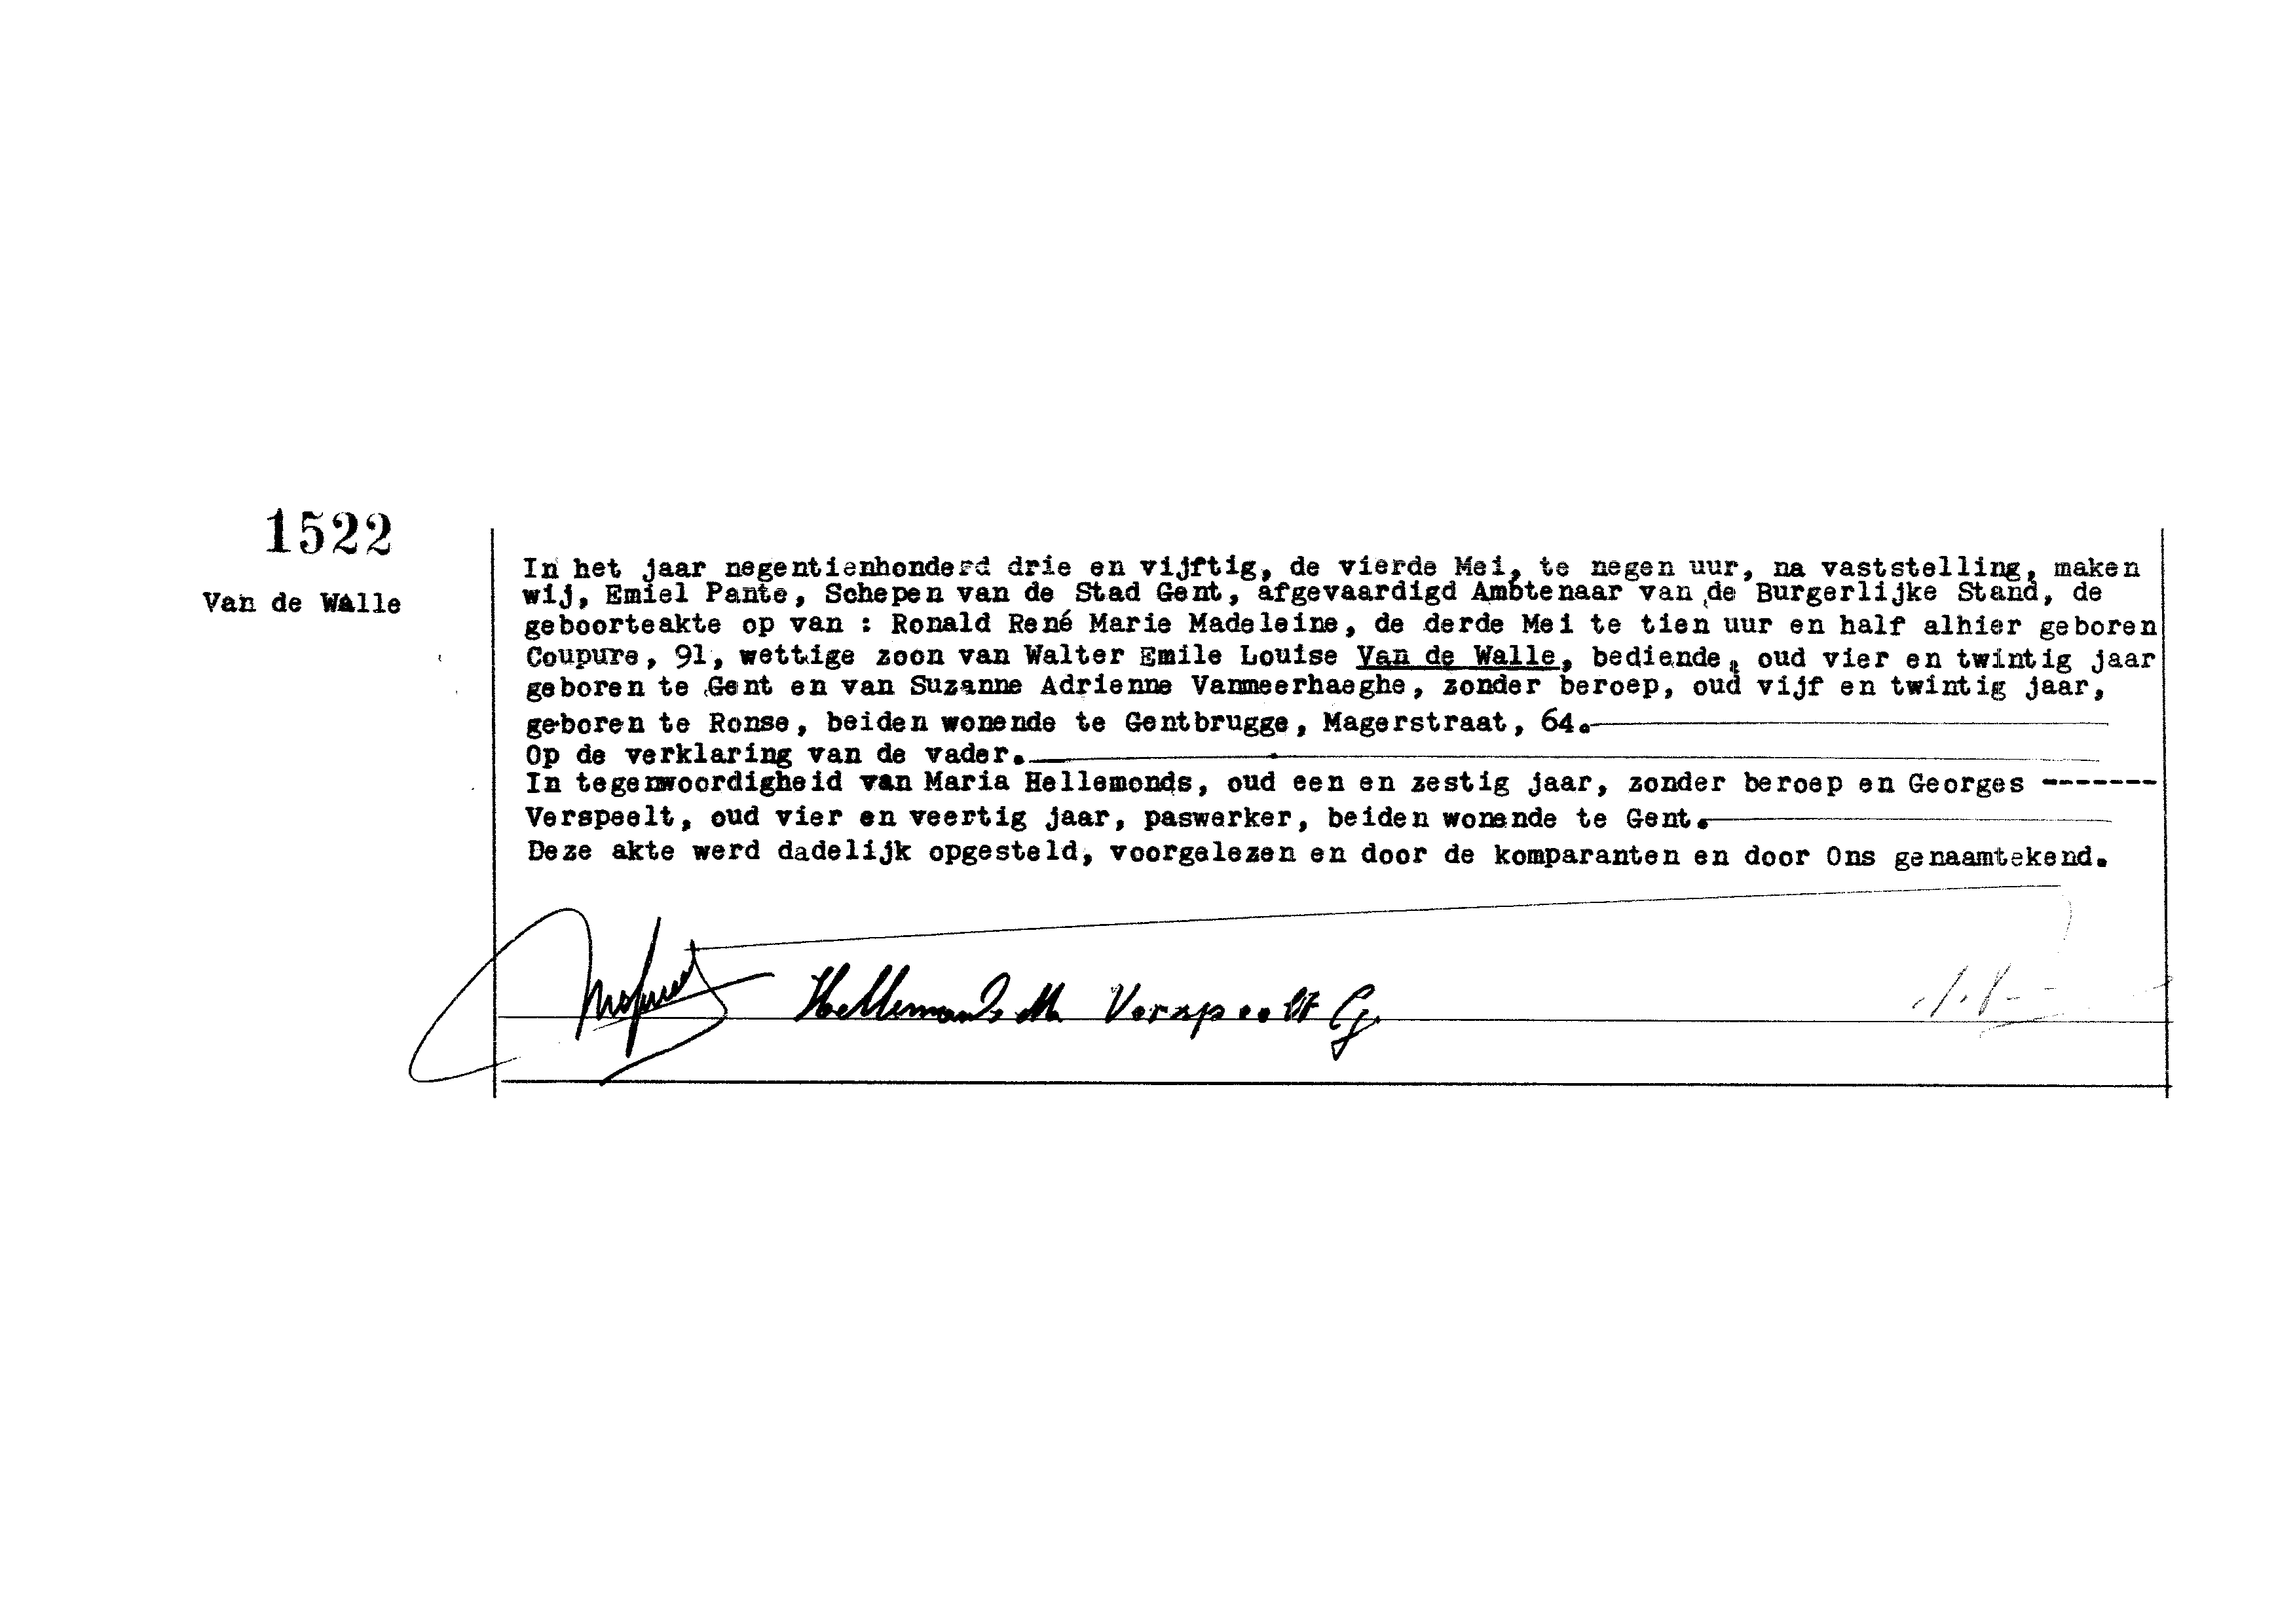 1522
Van de Walle
In het jaar negentienhonderd drie en vijftig, de vierde Mei, te negen uur, na vaststelling, maken
wij, Emiel Pante, Schepen van de Stad Gent, afgevaardigd Ambtenaar van de Burgerlijke Stand, de
geboorteakte op van : Ronald René Marie Madeleine, de derde Mei te tien uur en half alhier geboren
Coupure, 91, wettige zoon van Walter Emile Louise Van de Walle, bediende, oud vier en twintig jaar
geboren te Gent en van Suzanne Adrienne Vanmeerhaeghe, zonder beroep, oud vijf en twintig jaar,
geboren te Ronse, beiden wonende te Gentbrugge, Magerstraat, 64.
Op de verklaring van de vader.
In tegenwoordigheid van Maria Hellemonds, oud een en zestig jaar, zonder beroep en Georges -------
Verspeelt, oud vier en veertig jaar, paswerker, beiden wonende te Gent.
Deze akte werd dadelijk opgesteld, voorgelezen en door de komparanten en door Ons genaamtekend.
Hellemonds M Verspeelt G.